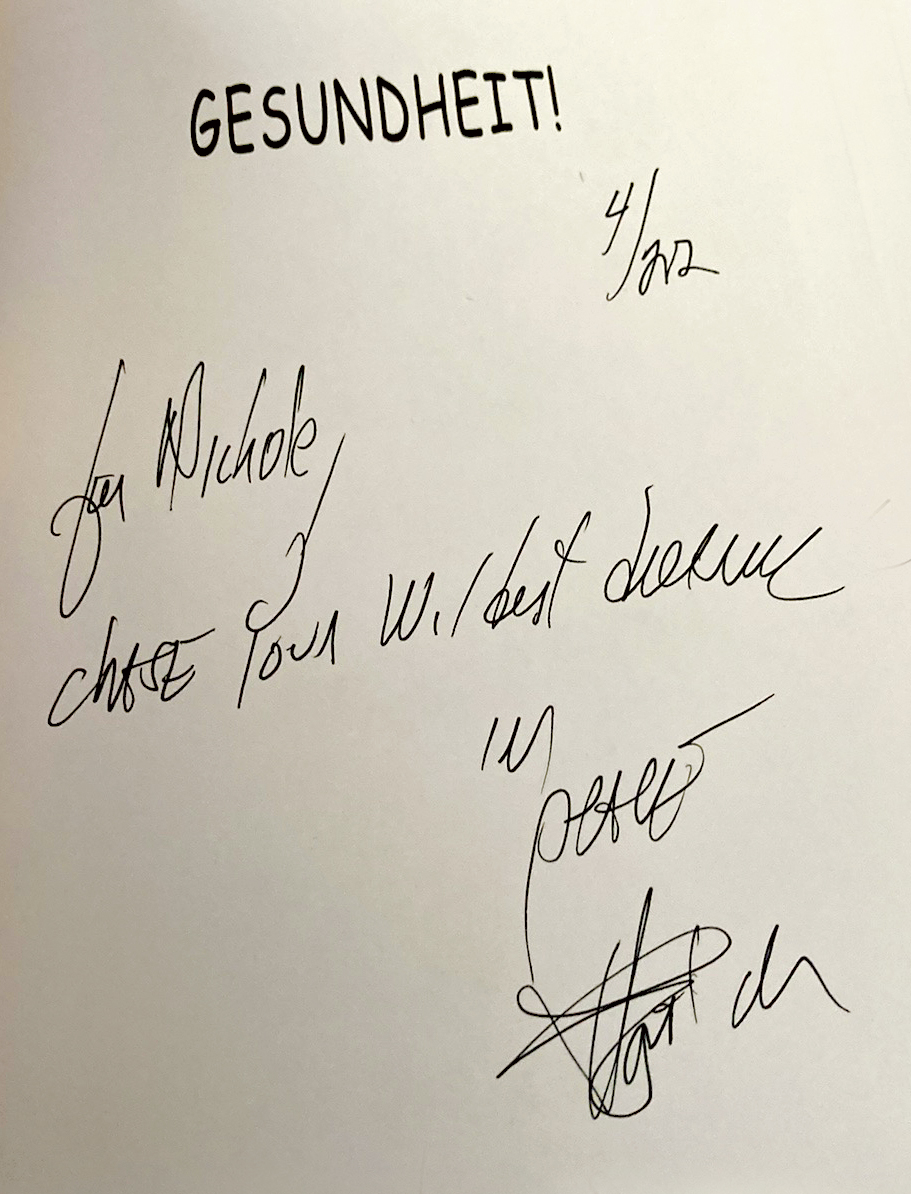 GESUNDHEIT!
4/22
for Nichole,
CHASE Your Wildest dreams
IN
peace
Patch